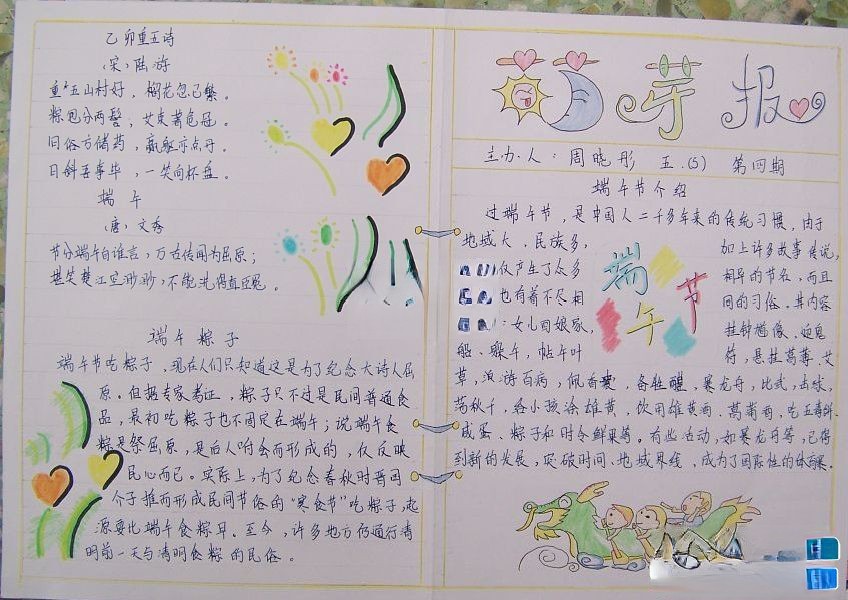 乙卯重五诗
(宋)陆游
重五山村好，榴花忽已繁。
粽包分两髻，艾束著危冠。
旧俗方储药，羸躯亦点丹。
日斜吾事毕，一笑向杯盘。
端午
(唐)文秀
节分端午自谁言，万古传闻为屈原；
堪笑楚江空渺渺，不能洗得直臣冤。
端午粽子
端午节吃粽子，现在人们只知道这是为了纪念大诗人屈
原。但据专家考证，粽子只不过是民间普通食
品，最初吃粽子也不固定在端午；说端午食
粽是祭屈原，是后人附会而形成的，仅反映
民心而已。实际上，为了纪念春秋时晋国
介子推而形成民间节俗的“寒食节”吃粽子，起
源要比端午食粽早。至今，许多地方仍通行清
明前一天与清明食粽的民俗。
芽报
主办人：周晓彤 五.(5) 第四期
端午节介绍
过端午节，是中国人二千多年来的传统习惯，由于
地域大，民族多，
加上许多故事传说，
仅产生了众多
相异的节名，而且
也有着不尽相
同的习俗。其内容
：女儿回娘家，
挂钟馗像、迎鬼
船、躲午，帖午叶
符，悬挂菖蒲、艾
端午节
草，游百病，佩香囊，备牲醴，赛龙舟，比武，击球，
荡秋千，给小孩涂雄黄，饮用雄黄酒、菖蒲酒，吃五毒饼、
咸蛋、粽子和时令鲜果等。有些活动，如赛龙舟等，已得
到新的发展，突破时间、地域界线，成为了国际性的体育赛。